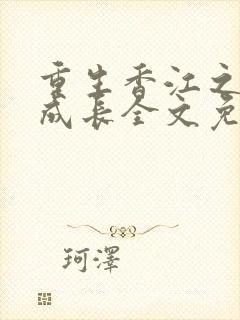 重生香江之
成长全文免
珂泽